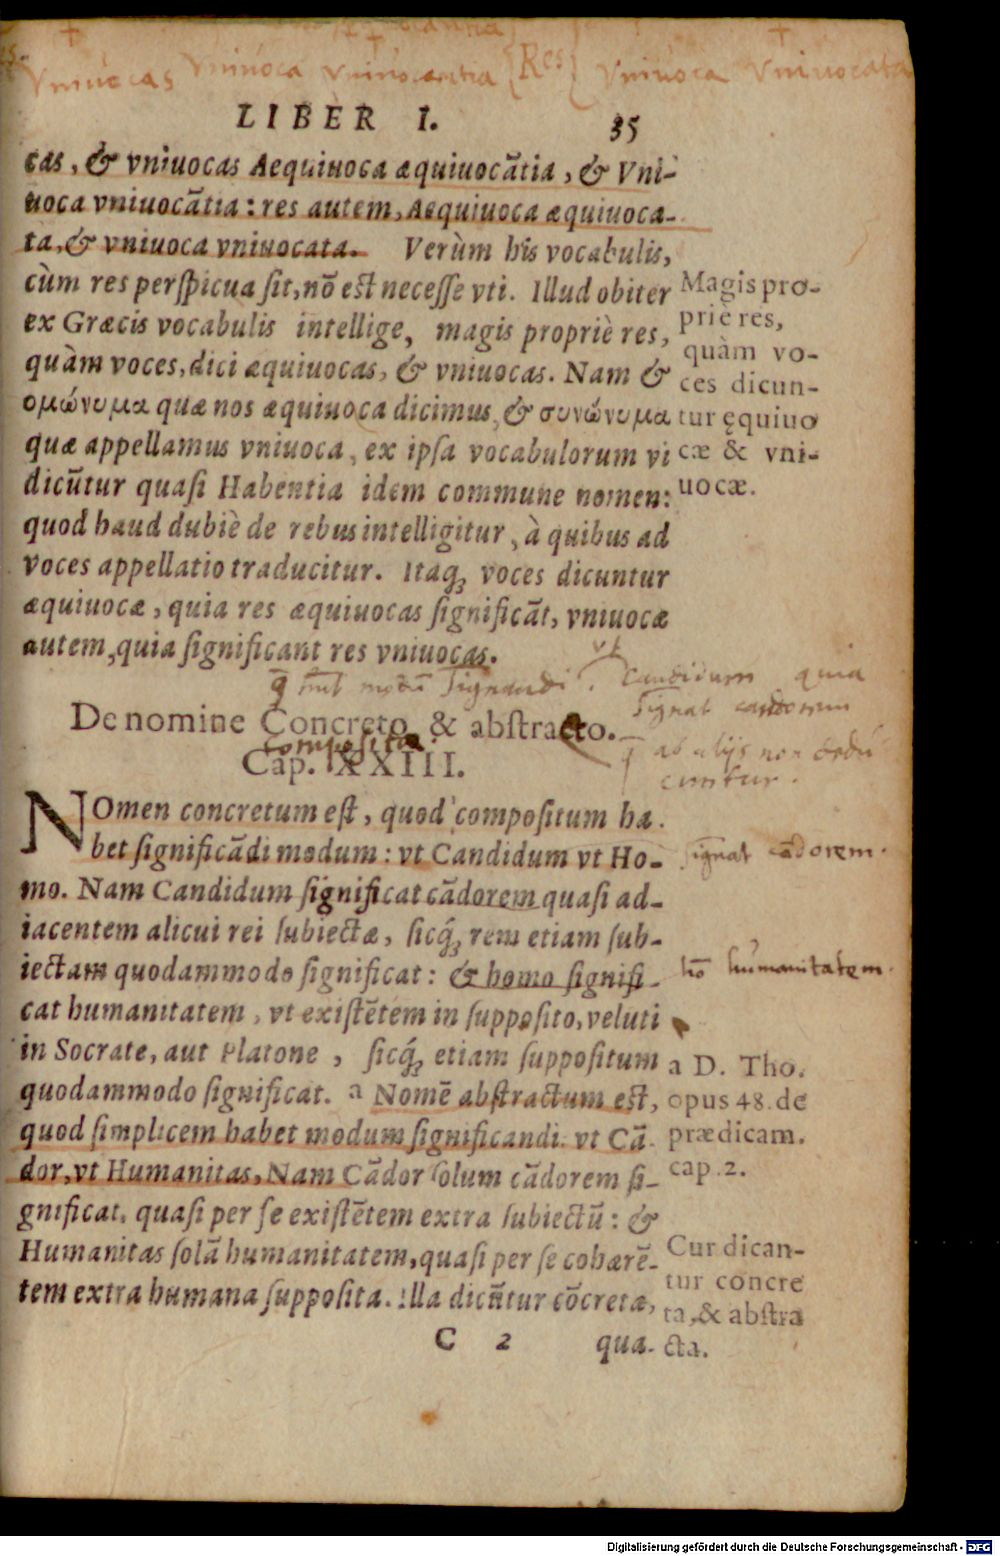 Vniuocas Vniuoca Vniuocantia {Res} Vniuoca Vniuocata
LIBER I. 35
cas, & vniuocas Aequiuoca æquiuocātia, & Vni-
uoca vniuocātia: res autem, Aequiuoca æquiuoca-
ta, & vniuoca vniuocata. Verùm his vocabulis,
cùm res perspicua sit, nō est necesse vti. Illud obiter
ex Græcis vocabulis intellige, magis propriè res,
quàm voces, dici æquiuocas, & vniuocas. Nam &
ομώνυμα quæ nos æquiuoca dicimus, & συνώνυμα
quæ appellamus vniuoca, ex ipsa vocabulorum vi
dicūtur quasi Habentia idem commune nomen:
quod haud dubiè de rebus intelligitur, à quibus ad
voces appellatio traducitur. Itaq; voces dicuntur
æquiuocæ, quia res æquiuocas significāt, vniuocæ
autem, quia significant res vniuocas.
Magis pro-
priè res,
quàm vo-
ces dicun-
tur ęquiuo
cæ & vni-
uocæ.
signandi. vt Candidum quia
signat candorem
De nomine Concreto, & abstracto.
ab alijs non
composita
Cap. XXIII.
NOmen concretum est, quod compositum ha.
bet significādi modum: vt Candidum vt Ho-
mo. Nam Candidum significat cādorem quasi ad-
iacentem alicui rei subiectæ, sicq́; rem etiam sub-
iectam quodammodo significat: & homo signifi-
cat humanitatem, vt existētem in supposito, veluti
in Socrate, aut Platone, sicq́; etiam suppositum
quodammodo significat. a Nomē abstractum est,
quod simplicem habet modum significandi. vt Cā-
dor, vt Humanitas, Nam Cādor solum cādorem si-
gnificat, quasi per se existētem extra subiectū: &
Humanitas solā humanitatem, quasi per se cohærē-
tem extra humana supposita. Illa dicūtur cōcretæ,
signat cādorem.
hō humanitatem.
a D. Tho.
opus 48. de
prædicam.
cap. 2.
Cur dican-
tur concre
ta, & abstra
cta.
C 2 qua-
Digitalisierung gefördert durch die Deutsche Forschungsgemeinschaft - DFG